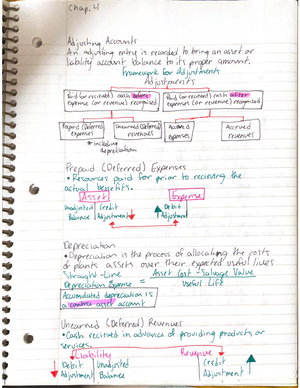 Chap. 4
Adjusting Accounts
An adjusting entry is recorded to bring an asset or
liability account balance to its proper amount.
Framework for Adjustments
Adjustments
Paid (or received) cash before
expense (or revenue) recognized
Paid (or received) cash after
expense (or revenue) recognized
Prepaid (Deferred)
expenses
Unearned (Deferred)
revenues
Accrued
expenses
Accrued
revenues
* including
depreciation
Prepaid (Deferred) Expenses
• Resources paid for prior to recieving the
actual benefits.
Asset Expense
Unadjusted Credit Debit
Balance Adjustment Adjustment
Depreciation
• Depreciation is the process of allocating the costs
of plants assets over their expected useful lives
Straight-Line
Depreciation Expense = Asset Cost - Salvage Value
Useful Life
Accumulated depreciation is
a contra asset account
Unearned (Deferred) Revenues
• Cash recieved in advance of providing products or
services.
Liability Revenue
Debit Unadjusted Credit
Adjustment Balance Adjustment